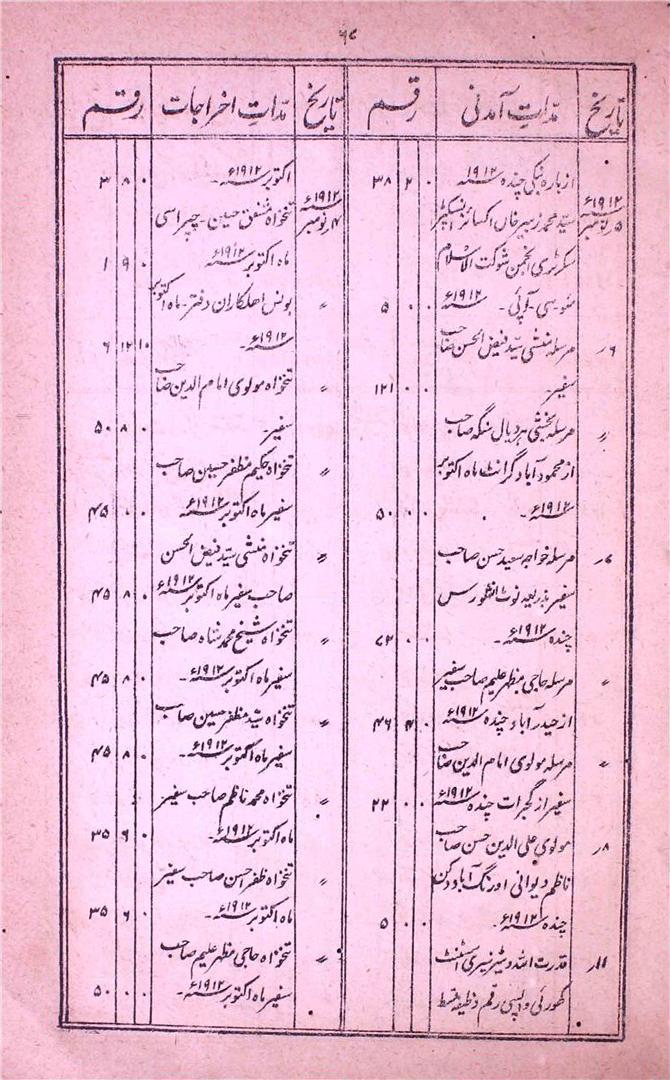 ۶۸
تاریخ مدات آمدنی رقم
۵ نومبر ۱۹۱۲ء از بارہ بنکی چندہ ۱۹۱۲ء ۰ ۲ ۳۸
سید محمد زبیر خاں اکسائز انسپکٹر
سکرٹری انجمن شوکت الاسلام
مئو سی۔ آئی۔ ۱۹۱۲ء ۰ ۰ ۵
۶؍ مرسلہ منشی سید فیض الحسن صاحب
سفیر ۰ ۰ ۱۲۱
〃 مرسلہ بخشی ہردیال سنگہ صاحب
از محمودآباد گرانٹ ماہ اکتوبر
۱۹۱۲ء۔ ۰ ۰ ۵۰
۷؍ مرسلہ خواجہ سعید حسن صاحب
سفیر بذریعہ نوٹ
چندہ ۱۹۱۲ء۔ ۰ ۰ ۷۲
〃 مرسلہ حاجی مظہر علیم صاحب سفیر
از حیدرآباد چندہ ۱۹۱۲ء ۰ ۴ ۴۶
〃 مرسلہ مولوی امام الدین صاحب
سفیر از گجرات چندہ ۱۹۱۲ء ۰ ۰ ۲۲
۸؍ مولوی علی الدین حسن صاحب
ناظم دیوانی اورنگ آباد دکن
چندہ ۱۹۱۲ء۔ ۰ ۰ ۵
۱۱؍ قدرت اللہ ویٹرنیری اسسٹنٹ
واپسی رقم وظیفہ قسط
تاریخ مدات اخراجات رقم
۴ نومبر ۱۹۱۲ء اکتوبر ۱۹۱۲ء۔ ۰ ۸ ۳
تنخواہ حسین۔ چپراسی
ماہ اکتوبر ۱۹۱۲ء ۰ ۹ ۱
〃 بونس اہلکاران دفتر۔ ماہ اکتوبر
۱۹۱۲ء۔ ۱۰ ۱۲ ۶
〃 تنخواہ مولوی امام الدین صاحب
سفیر۔ ۰ ۸ ۵۰
〃 تنخواہ حکیم مظفر حسین صاحب
سفیر ماہ اکتوبر ۱۹۱۲ء ۰ ۰ ۴۵
〃 تنخواہ منشی سید فیض الحسن
صاحب سفیر ماہ اکتوبر ۱۹۱۲ء ۰ ۸ ۴۵
〃 تنخواہ شیخ محمد شاہ صاحب
سفیر ماہ اکتوبر ۱۹۱۲ء۔ ۰ ۸ ۴۵
〃 تنخواہ سید مظفر حسین صاحب
سفیر ماہ اکتوبر ۱۹۱۲ء۔ ۰ ۸ ۴۵
〃 تنخواہ محمد ناظم صاحب سفیر
ماہ اکتوبر ۱۹۱۲ء۔ ۰ ۶ ۳۵
〃 تنخواہ ظفر احسن صاحب سفیر
ماہ اکتوبر ۱۹۱۲ء۔ ۰ ۶ ۳۵
〃 تنخواہ حاجی مظہر علیم صاحب
سفیر ماہ اکتوبر ۱۹۱۲ء۔ ۰ ۰ ۵۰